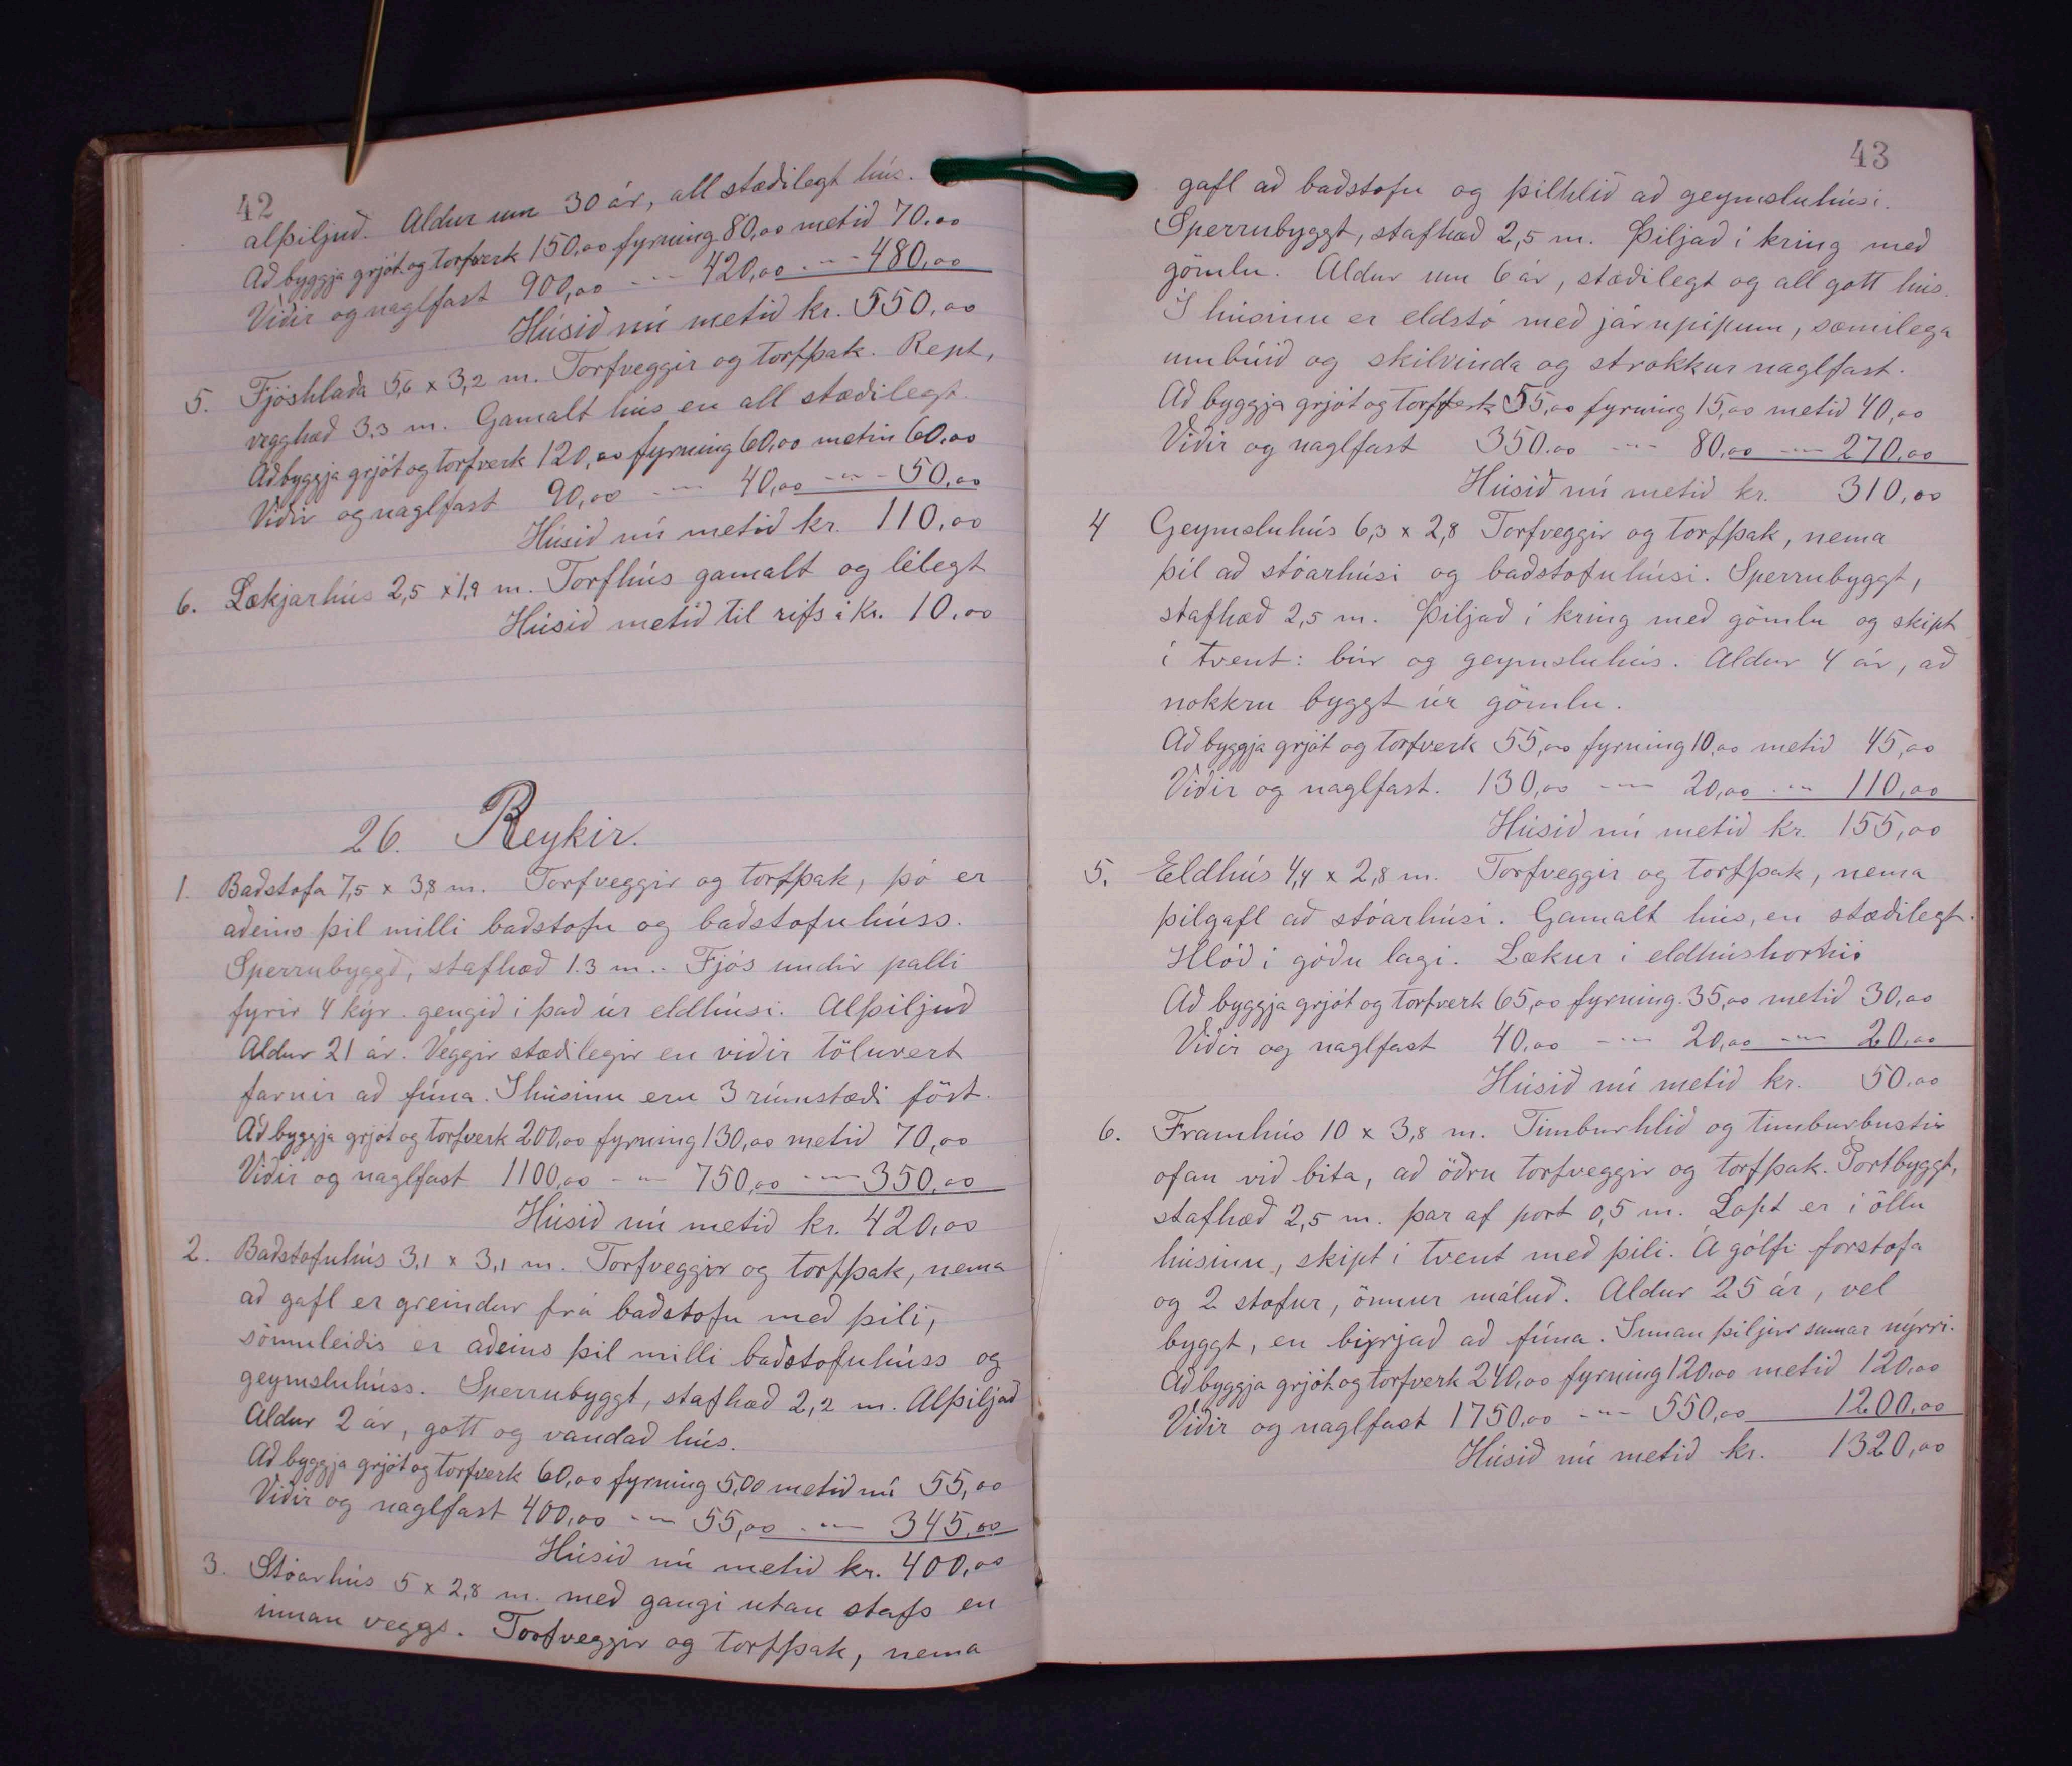 42
alþiljuð. Aldur um 30 ár, all stæðilegt hús.
Að byggja grjót og torfverk 150,00 fyrning 80,00 metið 70.00
Viðir og naglfast 900,00 -"- 420,00 -"- 480,00
Húsið nú metið kr. 550,00
5. Fjóshlaða 5,6 x 3,2 m. Torfveggir og torfþak. Rept,
vegghæð 3,3 m. Gamalt hús en all stæðilegt.
Að byggja grjót og torfverk 120,00 fyrning 60,00 metin 60,00
Viðir og naglfast 90,00 -"- 40,00 -"- 50,00
Húsið nú metið kr. 110,00
6. Lækjarhús 2,5 x 1,9 m. Torfhús gamalt og lélegt
Húsið metið til rifs á Kr. 10,00
26. Reykir.
1. Baðstofa 7,5 x 3,8 m. Torfveggir og torfþak, þó er
aðeins þil milli baðstofu og baðstofuhúss.
Sperrubyggð, stafhæð 1.3 m.. Fjós undir palli
fyrir 4 kýr. gengið i það úr eldhúsi. Alþiljuð
Aldur 21 ár. Veggir stæðilegir en viðir töluvert
farnir að fúna. I húsinu eru 3 rúmstæði föst.
Að byggja grjót og torfverk 200,00 fyrning 130,00 metið 70,00
Viðir og naglfast 1100,00 -"- 750,00 -"- 350,00
Húsið nú metið kr. 420,00
2. Baðstofuhús 3,1 x 3,1 m. Torfveggir og torfþak, nema
að gafl er greindur frá baðstofu með þili,
sömuleiðis er aðeins þil milli baðstofuhúss og
geymsluhúss. Sperrubyggt, stafhæð 2,2 m. Alþiljað
Aldur 2 ár, gott og vandað hús.
Að byggja grjót og torfverk 60,00 fyrning 5,00 metið nú 55,00
Viðir og naglfast 400,00 -"- 55,00 -"- 345,00
Húsið nú metið kr. 400,00
3. Stóarhús 5 x 2,8 m. með gangi utan stafs en
innan veggs. Torfveggir og torfþak, nema
43
gafl að baðstofu og þilhlið að geymsluhúsi.
Sperrubyggt, stafhæð 2,5 m. Þiljað í kring með
gömlu. Aldur um 6 ár, stæðilegt og all gott hús.
I húsinu er eldstó með járnpípum, sæmilega
umbúið og skilvinda og strokkur naglfast.
Að byggja grjót og torfverk 55,00 fyrning 15,00 metið 40,00
Viðir og naglfast 350.00 -"- 80,00 -"- 270,00
Húsið nú metið kr. 310,00
4 Geymsluhús 6,3 x 2,8 Torfveggir og torfþak, nema
þil að stóarhúsi og baðstofuhúsi. Sperrubyggt,
stafhæð 2,5 m. Þiljað í kring með gömlu og skipt
í tvent: búr og geymsluhús. Aldur 4 ár, að
nokkru byggt úr gömlu.
Að byggja grjót og torfverk 55,00 fyrning 10,00 metið 45,00
Viðir og naglfast. 130,00 -"- 20,00 -"- 110,00
Húsið nú metið kr. 155,00
5. Eldhús 4,4 x 2,8 m. Torfveggir og torfþak, nema
þilgafl að stóarhúsi. Gamalt hús, en stæðilegt.
Hlóð i góðu lagi. Lækur i eldhúshorni
Að byggja grjót og torfverk 65,00 fyrning. 35,00 metið 30,00
Viðir og naglfast 40,00 -"- 20,00 -"- 20,00
Húsið nú metið kr. 50,00
6. Framhús 10 x 3,8 m. Timburhlið og timburbustir
ofan við bita, að öðru torfveggir og torfþak. Portbyggt,
stafhæð 2,5 m. þar af port 0,5 m. Lopt er i öllu
húsinu, skipt i tvent með þili. Á gólfi forstofa
og 2 stofur, önnur máluð. Aldur 25 ár, vel
byggt, en byrjað að fúna. Innan þiljur sumar nýrri.
Að byggja grjót og torfverk 240,00 fyrning 120,00 metið 120,00
Viðir og naglfast 1750,00 -"- 550,00 1200,00
Húsið nú metið kr. 1320,00